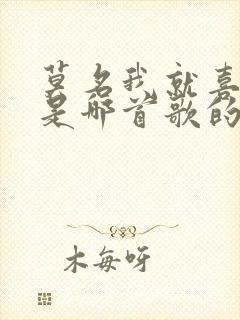 莫名我就喜
是哪首歌的
木每呀